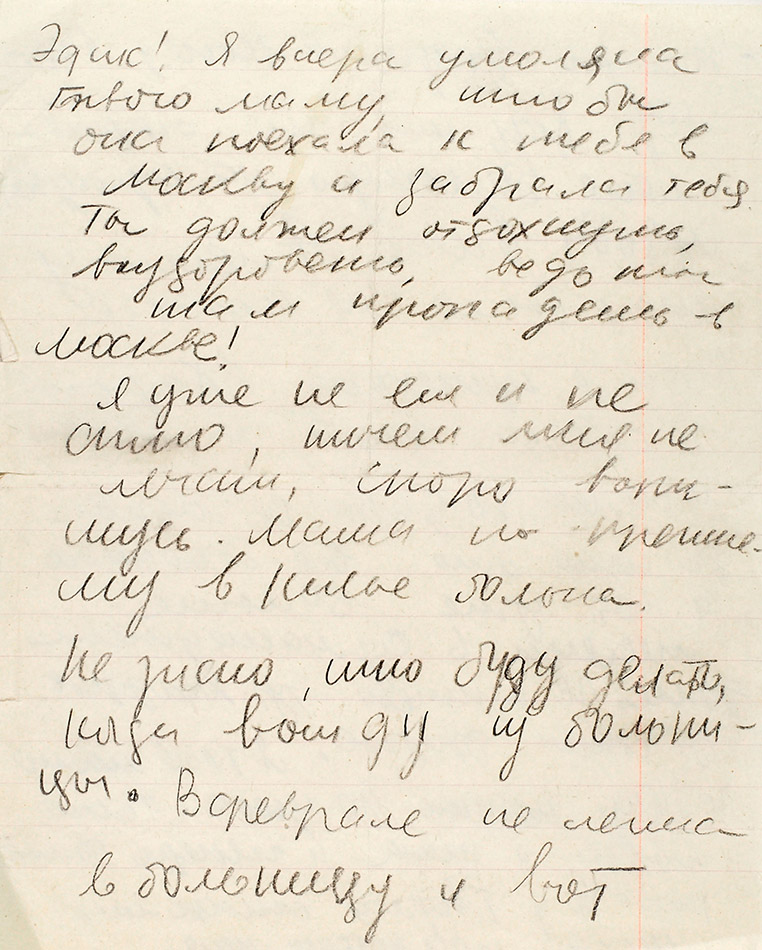 Эдик! Я вчера умоляла
Твою маму, что бы
она поехала к тебе в
Москву и забрала тебя.
Ты должен отдохнуть,
выздороветь, ведь ты
там пропадешь в
Москве!
Я уже не ем и не
сплю, ничем меня не
лечат, скоро
Мама по прежне-
му в Килие больна.
Не знаю, что буду делать,
когда выйду из больни-
цы. В феврале не легла
в больницу и вот